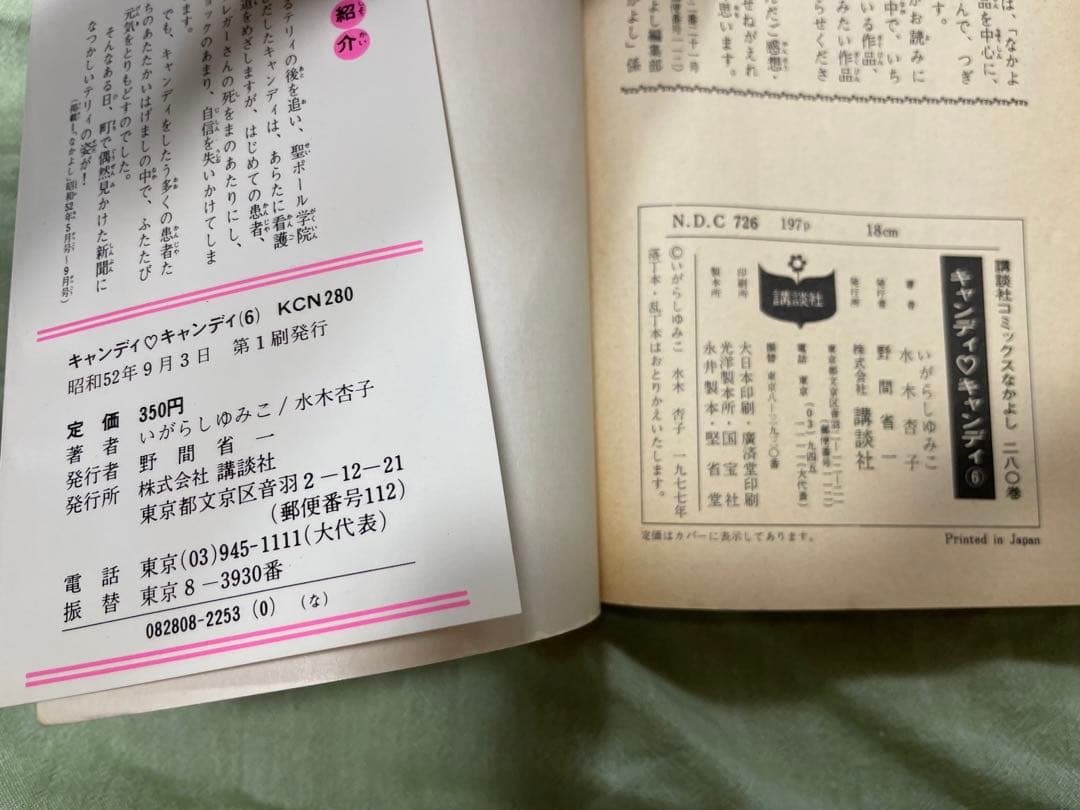 紹介
るテリィの後を追い、聖ポール学院
だしたキャンディは、あらたに看護
道をめざしますが、はじめての患者、
レガーさんの死をまのあたりにし、
ョックのあまり、自信を失いかけてしま
ます。
でも、キャンディをしたう多くの患者た
ちのあたたかいはげましの中で、ふたたび
元気をとりもどすのでした。
そんなある日、町で偶然見かけた新聞に
なつかしいテリィの姿が!
「掲載」、なかよし」昭和52年5月号~9月号)
キャンディ♡キャンディ(6) KCN280
昭和52年9月3日 第1刷発行
定価 350円
著者 いがらしゆみこ/水木杏子
発行者 野間省一
発行所 株式会社 講談社
東京都文京区音羽2-12-21
(郵便番号112)
電話 東京(03)945-1111(大代表)
振替 東京8-3930番
082808-2253 (0) (な)
は、「なかよ
品を中心に、
んで、つぎ
す。
がお読みに
中で、いち
いる作品、
みたい作品
らせくださ
だご感想・
せねがえれ
思います。
二番二十一号
便番号一一二)
よし編集部
よし」係
N.D.C 726 197p 18cm
講談社コミックスなかよし 二八〇巻
キャンディ♡キャンディ⑥
著者 いがらしゆみこ
水木杏子
発行者 野間省一
発行所 株式会社 講談社
東京都文京区音羽二-一二-二一
(郵便番号一一二)
電話 東京(〇三)九四五
一一一一(大代表)
振替 東京八-三九三〇番
講談社
印刷所 大日本印刷・廣済堂印刷
製本所 光洋製本所・国宝社
永井製本・堅省堂
©いがらしゆみこ 水木杏子 一九七七年
落丁本・乱丁本はおとりかえいたします。
定価はカバーに表示してあります。
Printed in Japan